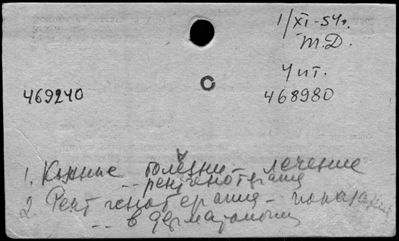 1/XI-54г.
М.Д.
Чит.
469240 468980
1. Кожные болезни - лечение
-"- рентгенотерапия
2. Рентгенотерапия - показания
-"- в дерматологии